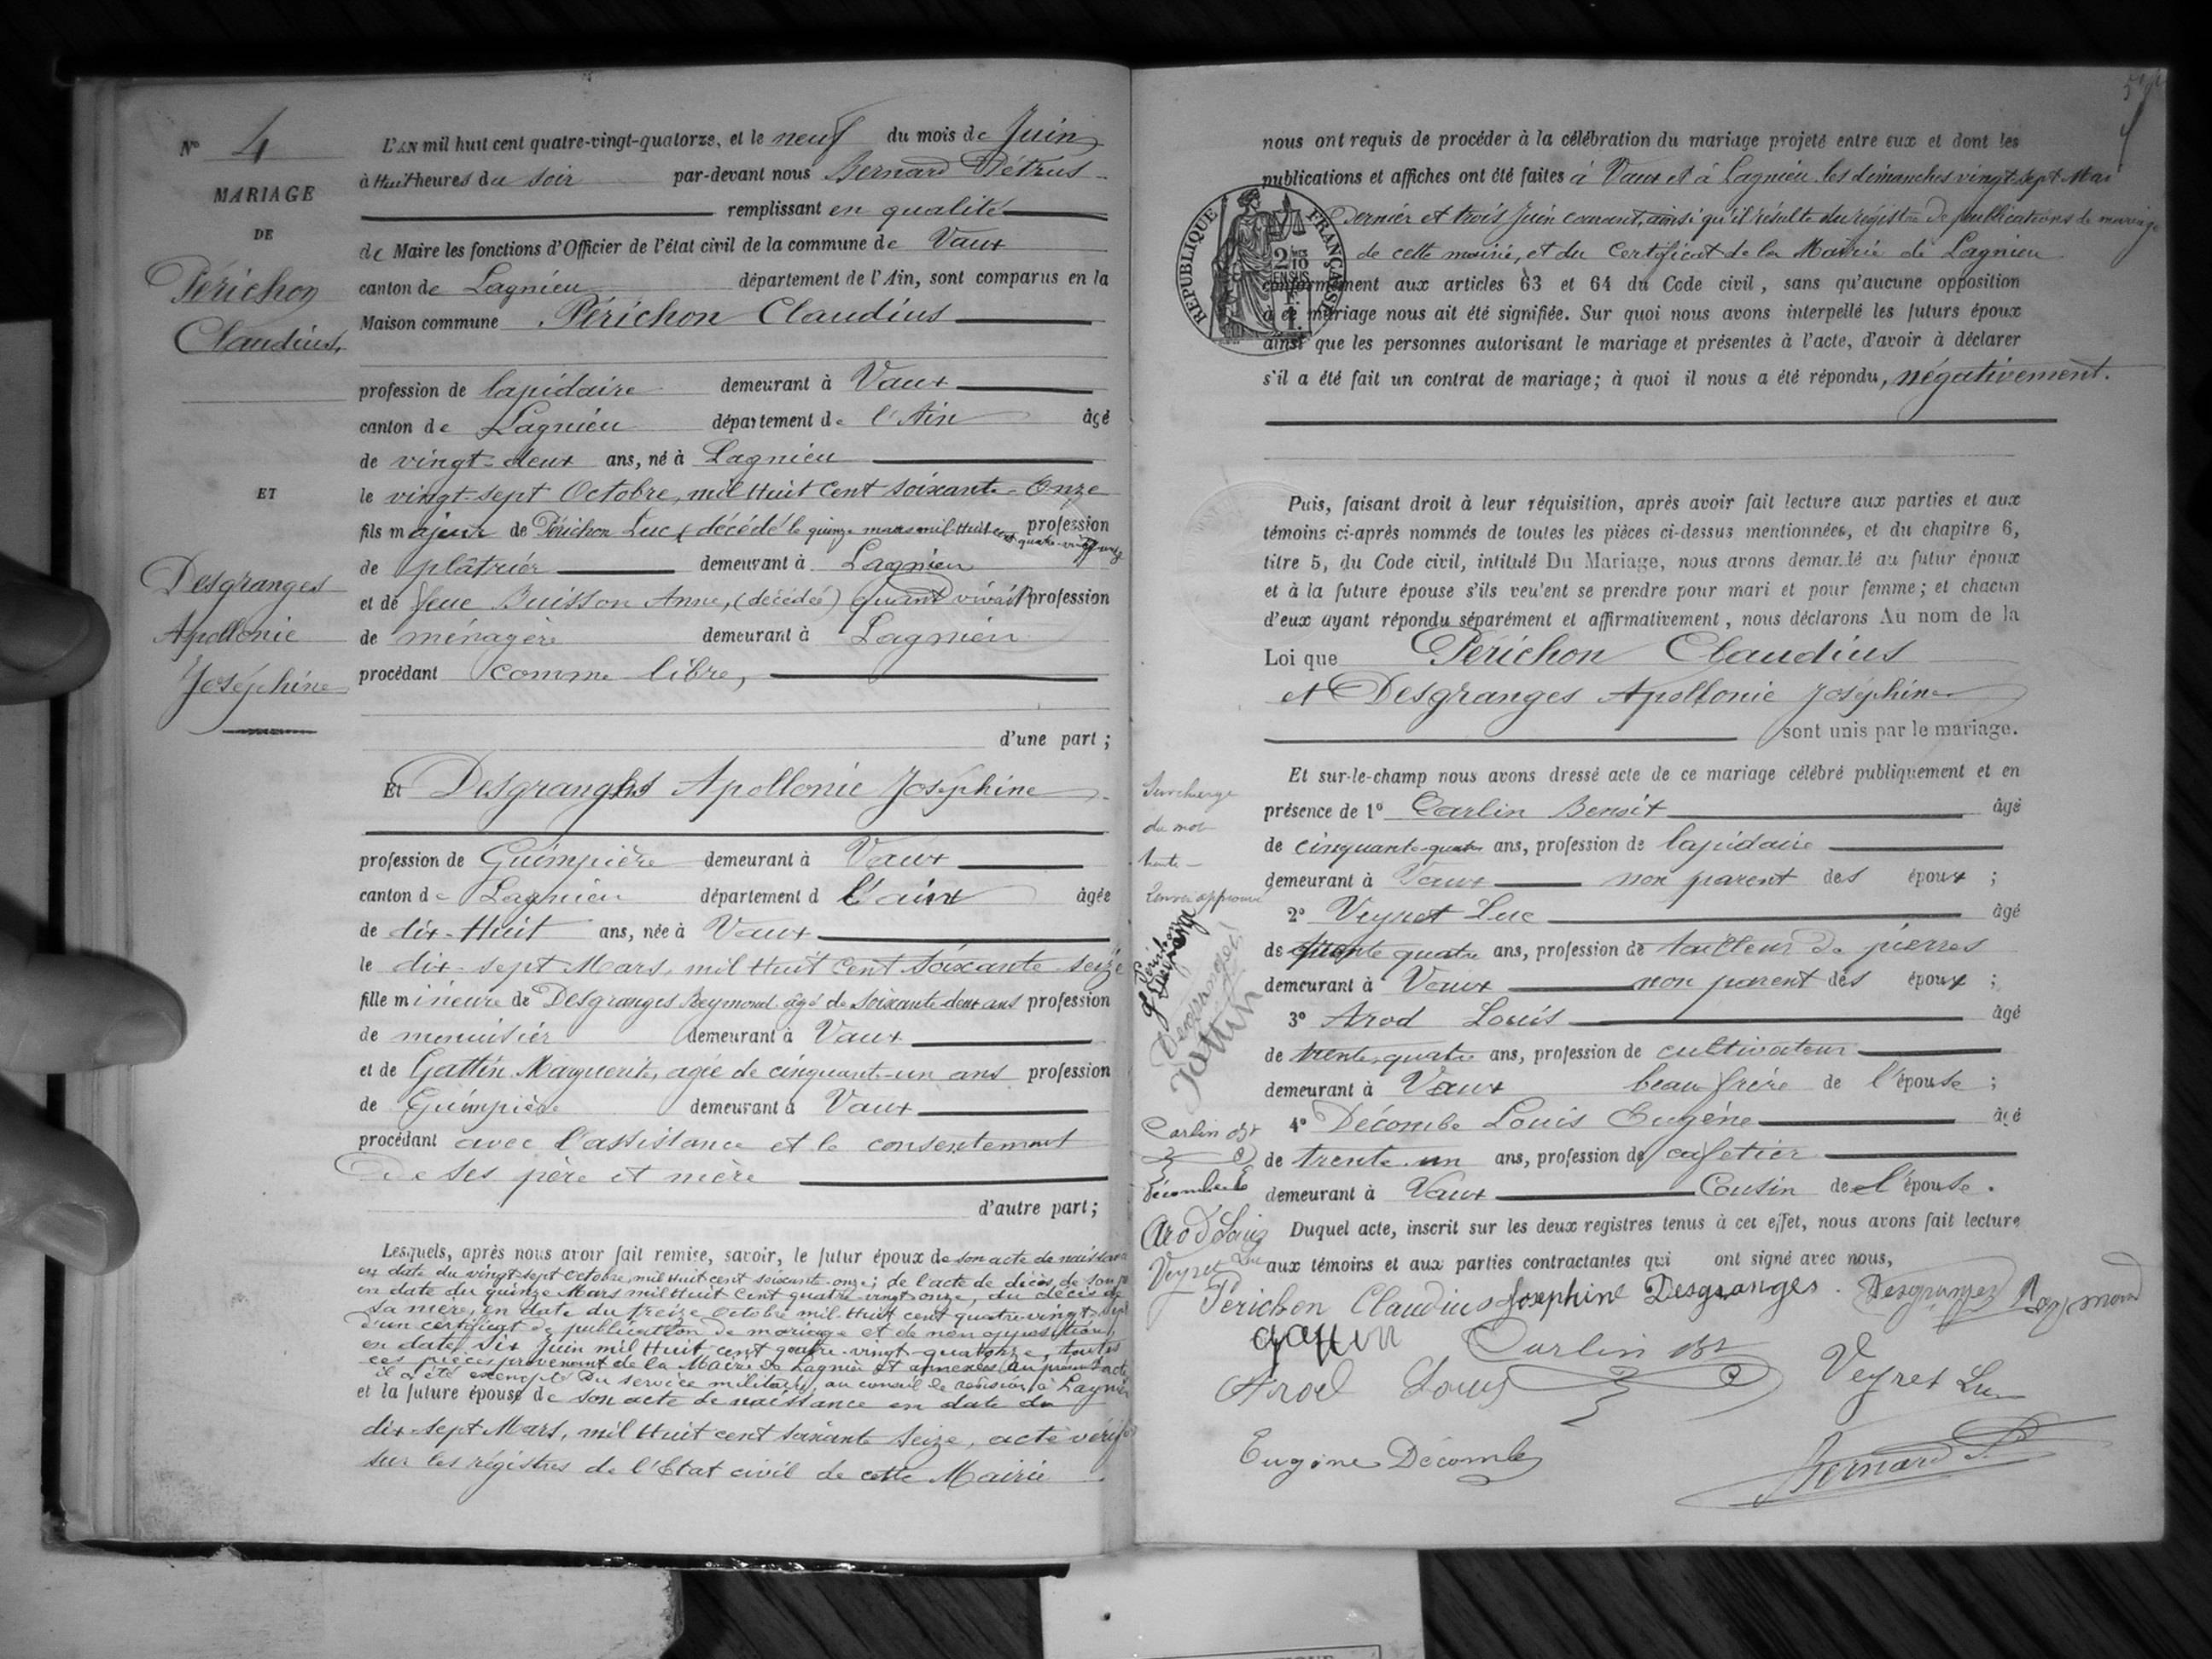 N° 4
MARIAGE
DE
Périchon
Claudius,
ET
Desgranges
Apollonie
Joséphine
L'AN mil huit cent quatre-vingt-quatorze, et le neuf du mois de Juin
à Huit heures du soir par-devant nous Bernard Pétrus
remplissant en qualité
de Maire les fonctions d'Officier de l'état civil de la commune de Vaux
canton de Lagnieu département de l'Ain, sont comparus en la
Maison commune Périchon Claudius
profession de lapidaire demeurant à Vaux
canton de Lagnieu département de l'Ain âgé
de vingt-deux ans, né à Lagnieu
le vingt-sept Octobre, mil Huit Cent soixante-Onze
fils majeur de Périchon Luc (décédé le quinze mars mil Huit cent quatre-vingt onze profession
de plâtrier demeurant à Lagnieu
et de feue Buisson Anne, (décédée) quand vivait profession
de ménagère demeurant à Lagnieu
procédant comme libre,
d'une part;
Et Desgranges Apollonie Joséphine
profession de Guimpière demeurant à Vaux
canton de Lagnieu département d l'ain âgée
de dix-Huit ans, née à Vaux
le dix-sept Mars, mil Huit Cent Soixante-seize
fille mineure de Desgranges Reymond âgé de soixante deux ans profession
de menuisier demeurant à Vaux
et de Gattin Marguerite, agée de cinquante-un ans profession
de Guimpière demeurant à Vaux
procédant avec l'assistance et le consentement
de ses père et mère
d'autre part;
Lesquels, après nous avoir fait remise, savoir, le futur époux de son acte de naissance
en date du vingt-sept Octobre mil Huit cent soixante-onze; de l'acte de décès de son
en date du quinze Mars mil Huit Cent quatre-vingt onze, du décès de
sa mère, en date du treize Octobre mil-Huit cent quatre-vingt
d'un certificat de publication de mariage et de non opposition,
en date, six Juin mil Huit cent quatre-vingt-quatorze, toutes
ces pièces provenant de la Mairie de Lagnieu et annexées au présent acte
il a été exempté du service militaire au conseil de révision à Lagnieu
et la future épouse de son acte de naissance en date du
dix-sept Mars, mil Huit cent soixante Seize, acte vérifié
sur les régistres de l'Etat civil de cette Mairie
nous ont requis de procéder à la célébration du mariage projeté entre eux et dont les
publications et affiches ont été faites à Vaux et à Lagnieu les dimanches vingt-sept Mai
dernier et trois Juin courant, ainsi qu'il résulte du régistre de publications de mariage
de cette mairie, et du Certificat de la Mairie de Lagnieu
conformément aux articles 63 et 64 du Code civil, sans qu'aucune opposition
à ce mariage nous ait été signifiée. Sur quoi nous avons interpellé les futurs époux
ainsi que les personnes autorisant le mariage et présentes à l'acte, d'avoir à déclarer
s'il a été fait un contrat de mariage; à quoi il nous a été répondu, négativement.
REPUBLIQUE FRANÇAISE
2/10 EN SUS
1 F.
Puis, faisant droit à leur réquisition, après avoir fait lecture aux parties et aux
témoins ci-après nommés de toutes les pièces ci-dessus mentionnées, et du chapitre 6,
titre 5, du Code civil, intitulé Du Mariage, nous avons demandé au futur époux
et à la future épouse s'ils veulent se prendre pour mari et pour femme; et chacun
d'eux ayant répondu séparément et affirmativement, nous déclarons Au nom de la
Loi que Périchon Claudius
et Desgranges Apollonie Joséphine
sont unis par le mariage.
Et sur-le-champ nous avons dressé acte de ce mariage célébré publiquement et en
présence de 1° Carlin Benoit âgé
de cinquante-quatre ans, profession de lapidaire
demeurant à Vaux non parent des époux ;
2° Veyret Luc âgé
de trente quatre ans, profession de tailleur de pierres
demeurant à Vaux non parent des époux ;
3° Arod Louis âgé
de trente-quatre ans, profession de cultivateur
demeurant à Vaux beau frère de l'épouse ;
4° Décombe Louis Eugène âgé
de trente-un ans, profession de cafetier
demeurant à Vaux Cousin de l'épouse.
Duquel acte, inscrit sur les deux registres tenus à cet effet, nous avons fait lecture
aux témoins et aux parties contractantes qui ont signé avec nous,
Surcharge
du mot
trente
Renvoi approuvé
Desgranges
Gattin
Carlin Bt
Décombe
Arod Louis
Veyret Luc
Périchon Claudius Josephine Desgranges. Desgranges Reymond
gattin Carlin Bt
Arod Louis Veyret Luc
Eugène Décombe
Bernard P.